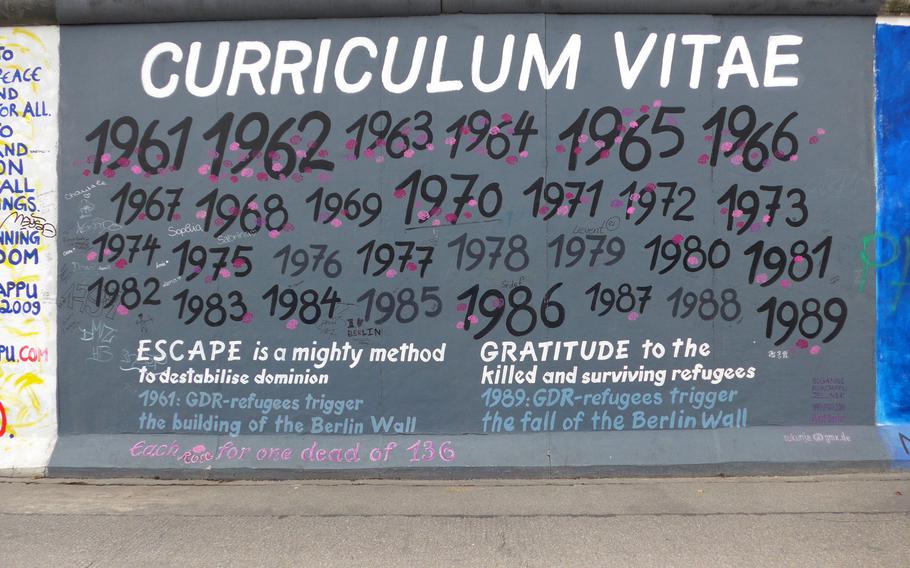 CURRICULUM VITAE
1961 1962 1963 1964 1965 1966
1967 1968 1969 1970 1971 1972 1973
1974 1975 1976 1977 1978 1979 1980 1981
1982 1983 1984 1985 1986 1987 1988 1989
ESCAPE is a mighty method
to destabilise dominion
1961: GDR-refugees trigger
the building of the Berlin Wall
GRATITUDE to the
killed and surviving refugees
1989: GDR-refugees trigger
the fall of the Berlin Wall
Each Rose for one dead of 136
TO
PEACE
ND
FOR ALL.
TO
AND
ON
ALL
INGS.
NNING
DOM
APPU
2009
PU.COM
Sophia
Sabrina
BERLIN
SUSANNE